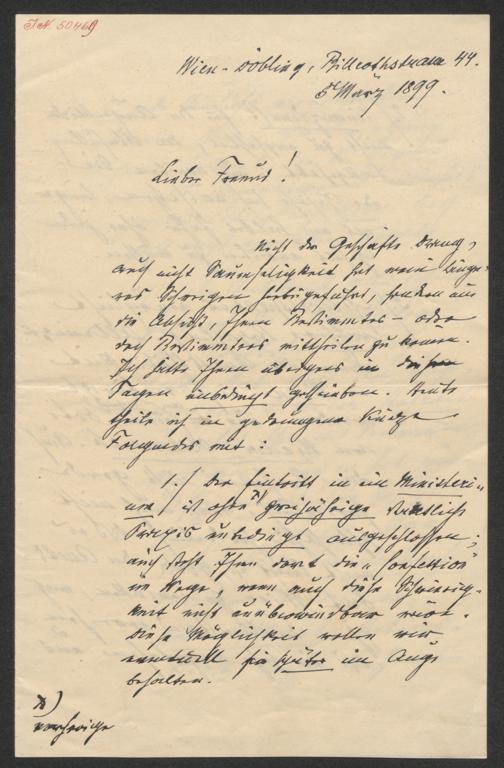 I.N. 50469
Wien-Döbling, Billrothstrasse 44.
5 März 1899.
Lieber Freund!
Nicht der Geschäfte Drang,
auch nicht Saumseligkeit hat mein länge-
res Schweigen herbeigeführt, sondern nur
die Absicht, Ihnen Bestimmtes – oder
doch Bestimmteres mittheilen zu können.
Ich hätte Ihnen übrigens in diesen
Tagen unbedingt geschrieben. Heute
theile ich in gedrungener Kürze
Folgendes mit:
1.) Der Eintritt in ein Ministeri-
um ist ohne x) zweijährige ämtliche
Praxis unbedingt ausgeschlossen;
auch steht Ihnen dort die „Confession"
im Wege, wenn auch diese Schwierig-
keit nicht unüberwindbar wäre.
Diese Möglichkeit wollen wir
eventuell für später im Auge
behalten.
x)
vorherige